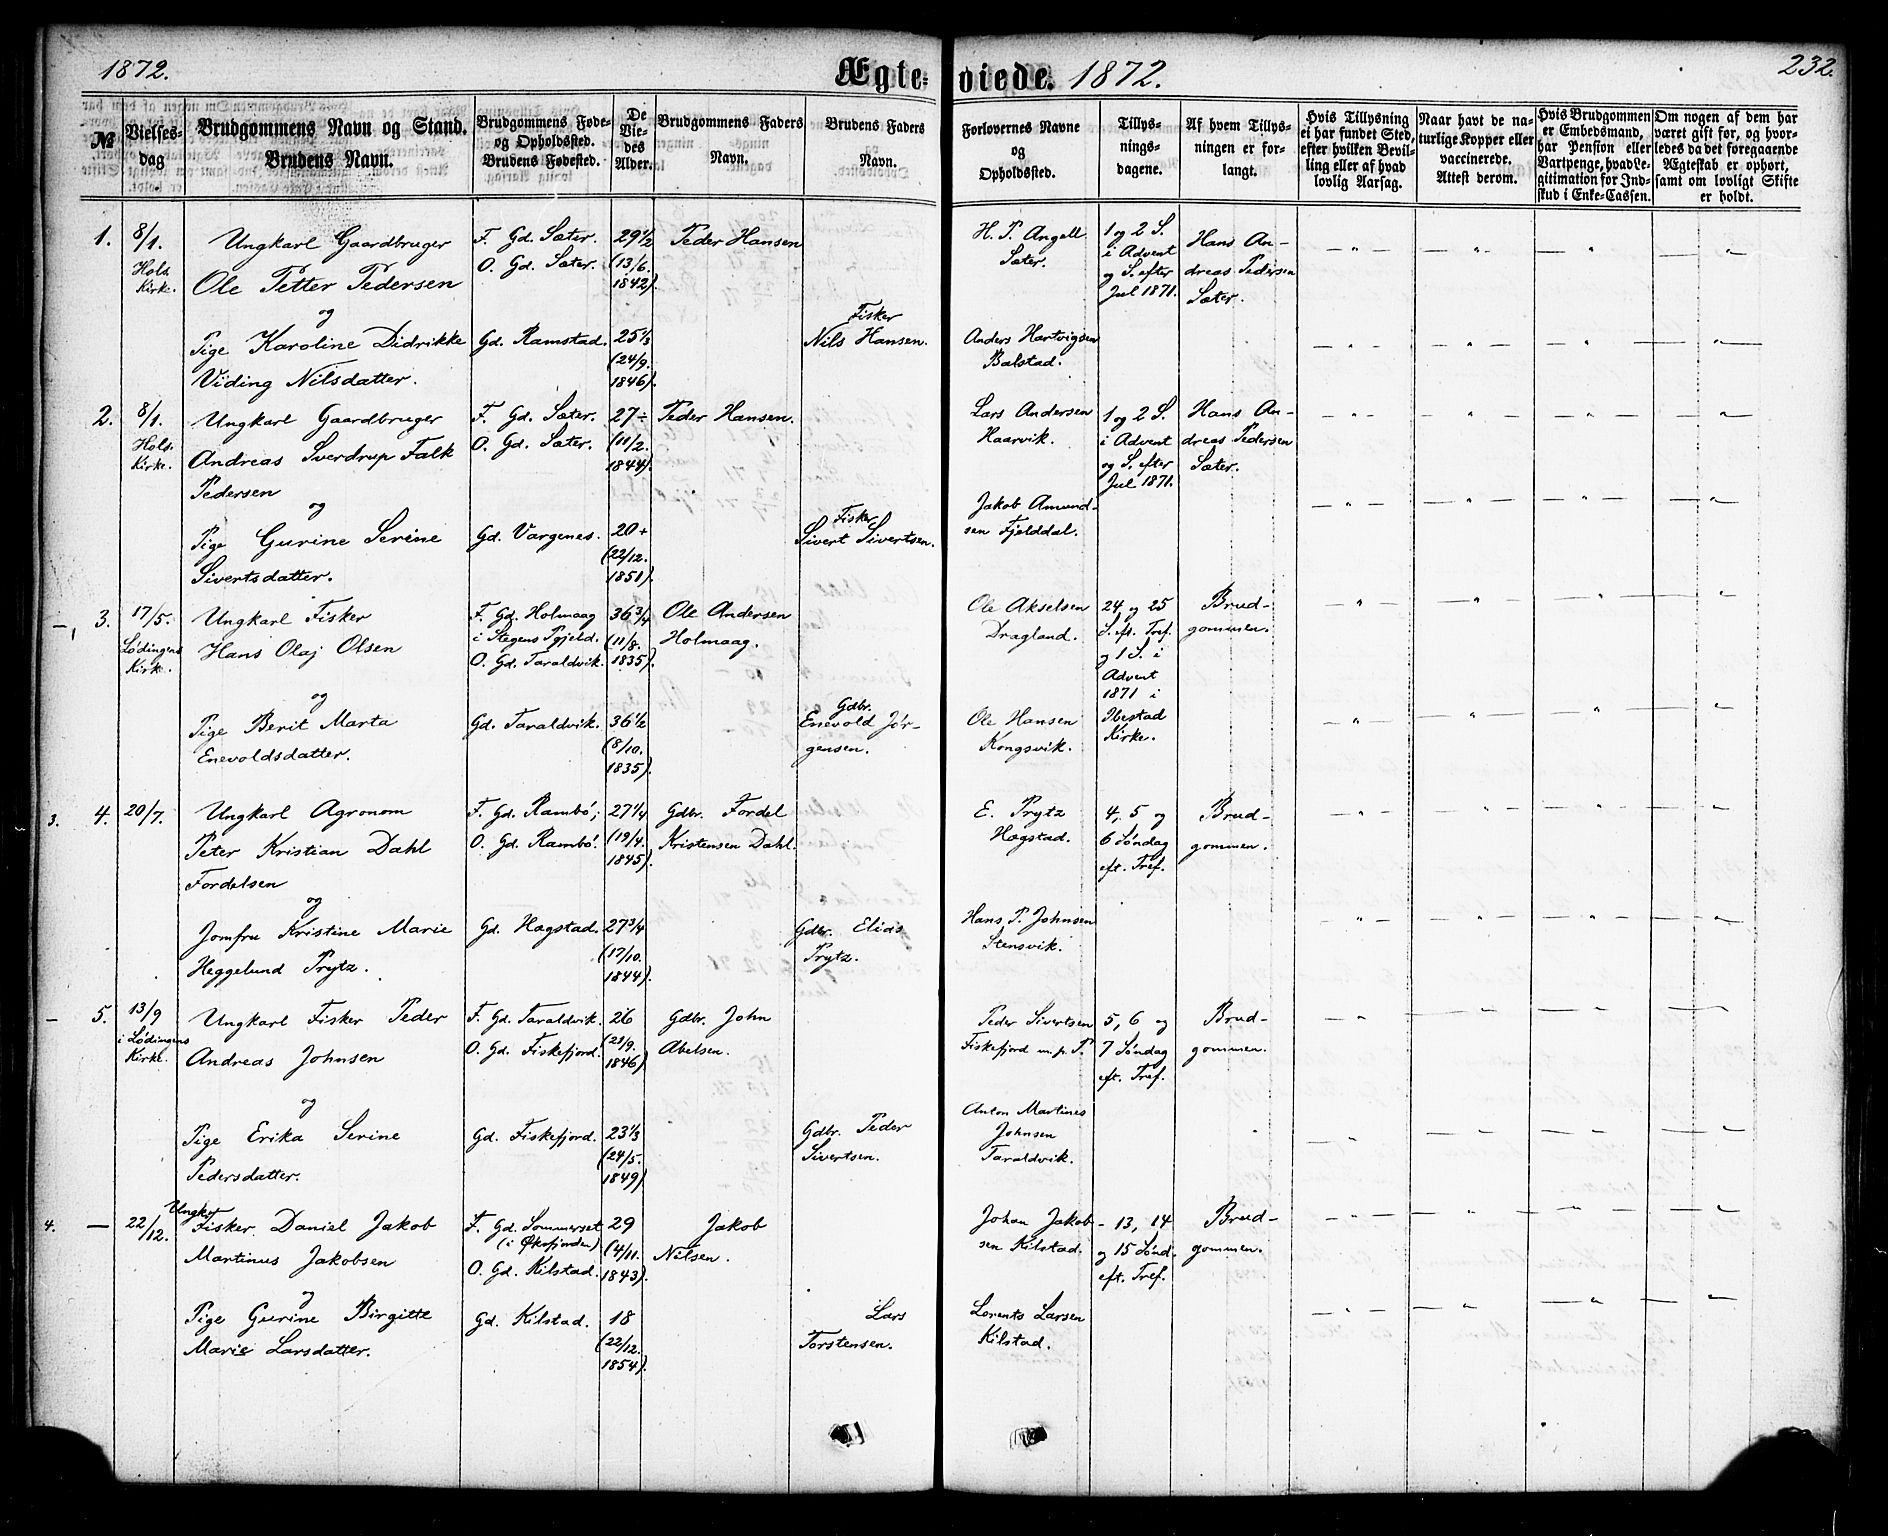 1872. Ægte- viede. 1872. 232.
№
Vielses-
dag
Brudgommens Navn og Stand.
Brudens Navn.
Brudgommens Føde-
og Opholdssted.
Brudens Fødested.
De
Vie-
des
Alder.
Brudgommens Faders
Navn.
Brudens Faders
Navn.
Forlovernes Navne
og
Opholdssted.
Tillys-
nings-
dagene.
Af hvem Tillys-
ningen er for-
langt.
Hvis Tillysning
ei har fundet Sted,
efter hvilken Bevil-
ling eller af hvad
lovlig Aarsag.
Naar havt de na-
turlige Kopper eller
vaccinerede.
Attest derom.
Hvis Brudgommen
er Embedsmand,
har Pension eller
Vartpenge, hvad Le-
gitimation for Ind-
skud i Enke-Cassen.
Om nogen af dem har
været gift før, og hvor-
ledes da det foregaaende
Ægteskab er ophørt,
samt om lovligt Skifte
er holdt.
1.
8/1.
Hols
Kirke.
Ungkarl Gaardbruger
Ole Petter Pedersen
og
Pige Karoline Didrikke
Viding Nilsdatter.
F. Gd. Sæter.
O. Gd. Sæter.
Gd. Ramstad.
29 1/2
(13/6.
1842).
25 1/3
(24/9.
1846).
Peder Hansen
Fisker
Nils Hansen.
H. P. Angell
Sæter.
Anders Hartvigsen
Balstad.
1 og 2 S.
i Advent
og S. efter
Jul 1871.
Hans An-
dreas Pedersen
Sæter.
2.
8/1.
Hols
Kirke.
Ungkarl Gaardbruger
Andreas Sverdrup Falk
Pedersen
og
Pige Gurine Serine
Sivertsdatter.
F. Gd. Sæter.
O. Gd. Sæter.
Gd. Vargenes.
27 ÷
(11/2.
1844).
20 +
(22/12.
1851).
Peder Hansen.
Fisker
Sivert Sivertsen.
Lars Andersen
Haarvik.
Jakob Amund-
sen Fjelddal.
1 og 2 S.
i Advent
og S. efter
Jul 1871.
Hans An-
dreas Pedersen
Sæter.
3.
17/5.
Lødingens
Kirke.
Ungkarl Fisker
Hans Olaj Olsen
og
Pige Berit Marta
Enevoldsdatter.
F. Gd. Holmaag
i Stegens Pgjeld.
O. Gd. Taraldvik.
Gd. Taraldvik.
36 3/4
(11/8.
1835).
36 1/2
(8/10.
1835).
Ole Andersen
Holmaag.
Gdbr.
Enevold Jør-
gensen.
Ole Akselsen
Dragland.
Ole Hansen
Kongsvik.
24 og 25
S. eft. Tref.
og 1 S. i
Advent
1871 i
Ibestad
Kirke.
Brud-
gommen.
3. 4.
20/7.
Ungkarl Agronom
Peter Kristian Dahl
Fordelsen
og
Jomfru Kristine Marie
Heggelund Prytz.
F. Gd. Rambø;
O. Gd. Rambø.
Gd. Hægstad.
27 1/4
(19/4.
1845).
27 3/4
(17/10.
1844).
Gdbr. Fordel
Kristensen Dahl.
Gdbr. Elias
Prytz.
E. Prytz
Hægstad.
Hans P. Johnsen
Stensvik.
4, 5 og
6 Søndag
eft. Tref.
Brud-
gommen.
5.
13/9
i Lødingens
Kirke.
Ungkarl Fisker Peder
Andreas Johnsen
og
Pige Erika Serine
Pedersdatter.
F. Gd. Taraldvik.
O. Gd. Fiskefjord.
Gd. Fiskefjord.
26
(21/9.
1846)
23 1/3
(24/5.
1849).
Gdbr. John
Abelsen.
Gdbr. Peder
Sivertsen.
Peder Sivertsen
Fiskefjord m. p. P.
Anton Martines
Johnsen
Taraldvik.
5, 6 og
7 Søndag
eft. Tref.
Brud-
gommen.
4. —
22/12.
Ungk.
Fisker Daniel Jakob
Martinus Jakobsen
og
Pige Gurine Birgitte
Marie Larsdatter.
F. Gd. Sommerset
(i Øksfjorden)
O. Gd. Kilstad.
Gd. Kilstad.
29
(4/11.
1843).
18
(22/12.
1854).
Jakob
Nilsen.
Lars
Torstensen.
Johan Jakob-
sen Kilstad.
Lorents Larsen
Kilstad.
13, 14
og 15 Sønd.
eft. Tref.
Brud-
gommen.